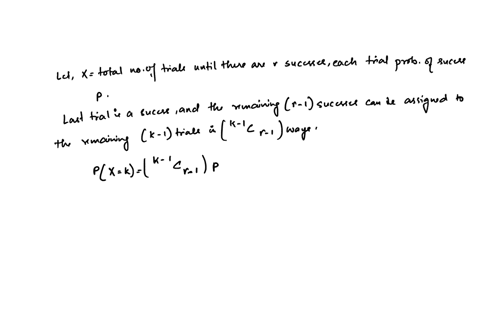 Let, X = total no. of trials until there are r success, each trial prob. of success
p.
Last trial is a success, and the remaining (r-1) successes can be assigned to
the remaining (k-1) trials in (ᵏ⁻¹C ᵣ₋₁) ways.
P(X=k) = (ᵏ⁻¹Cᵣ₋₁) p